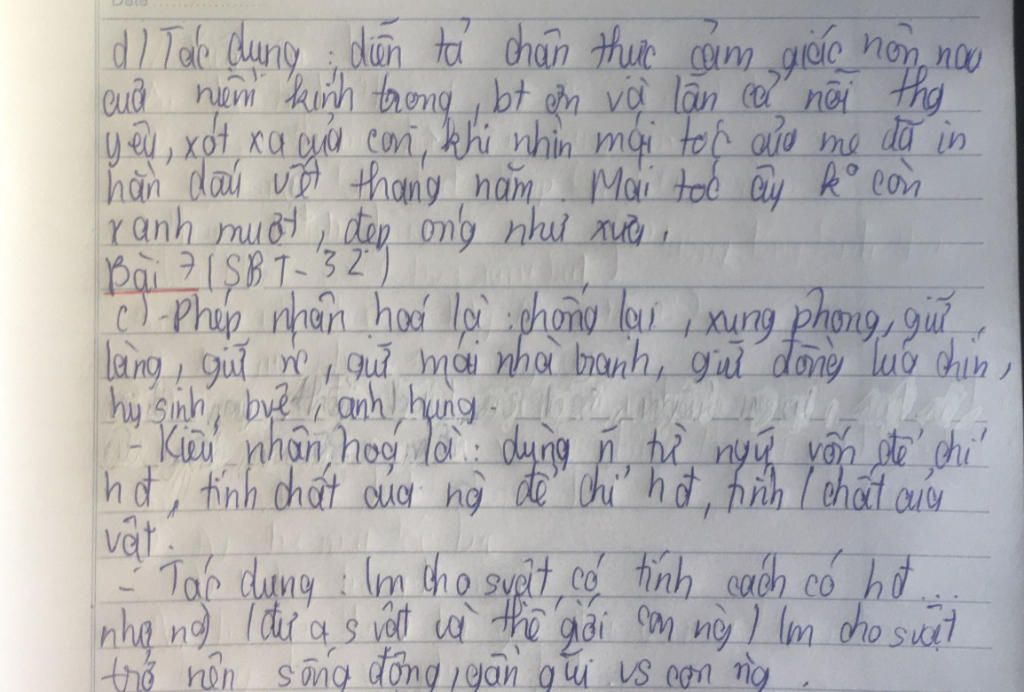 d) Tác dụng : diễn tả chân thực cảm giác nôn nao
của niềm kính trọng, bt ơn và lẫn cả nỗi thg
yêu, xót xa của con, khi nhìn mái tóc của mẹ đã in
hằn dấu vết tháng năm. Mái tóc ấy kº còn
xanh mướt, đẹp óng như xưa.
Bài 7 (SBT - 32)
c) - Phép nhân hoá là : chống lại, xung phong, giữ
làng, giữ nc, giữ mái nhà tranh, giữ đồng lúa chín,
hy sinh, bvệ, anh hùng.
- Kiểu nhân hoá là : dùng ~ từ ngữ vốn để chỉ
hđ, tính chất của ng để chỉ hđ, tính chất của
vật.
- Tác dụng : lm cho svật có tính cách có hđ...
như ng (đưa svật về thế giới con ng) lm cho svật
trở nên sống động, gần gũi vs con ng.